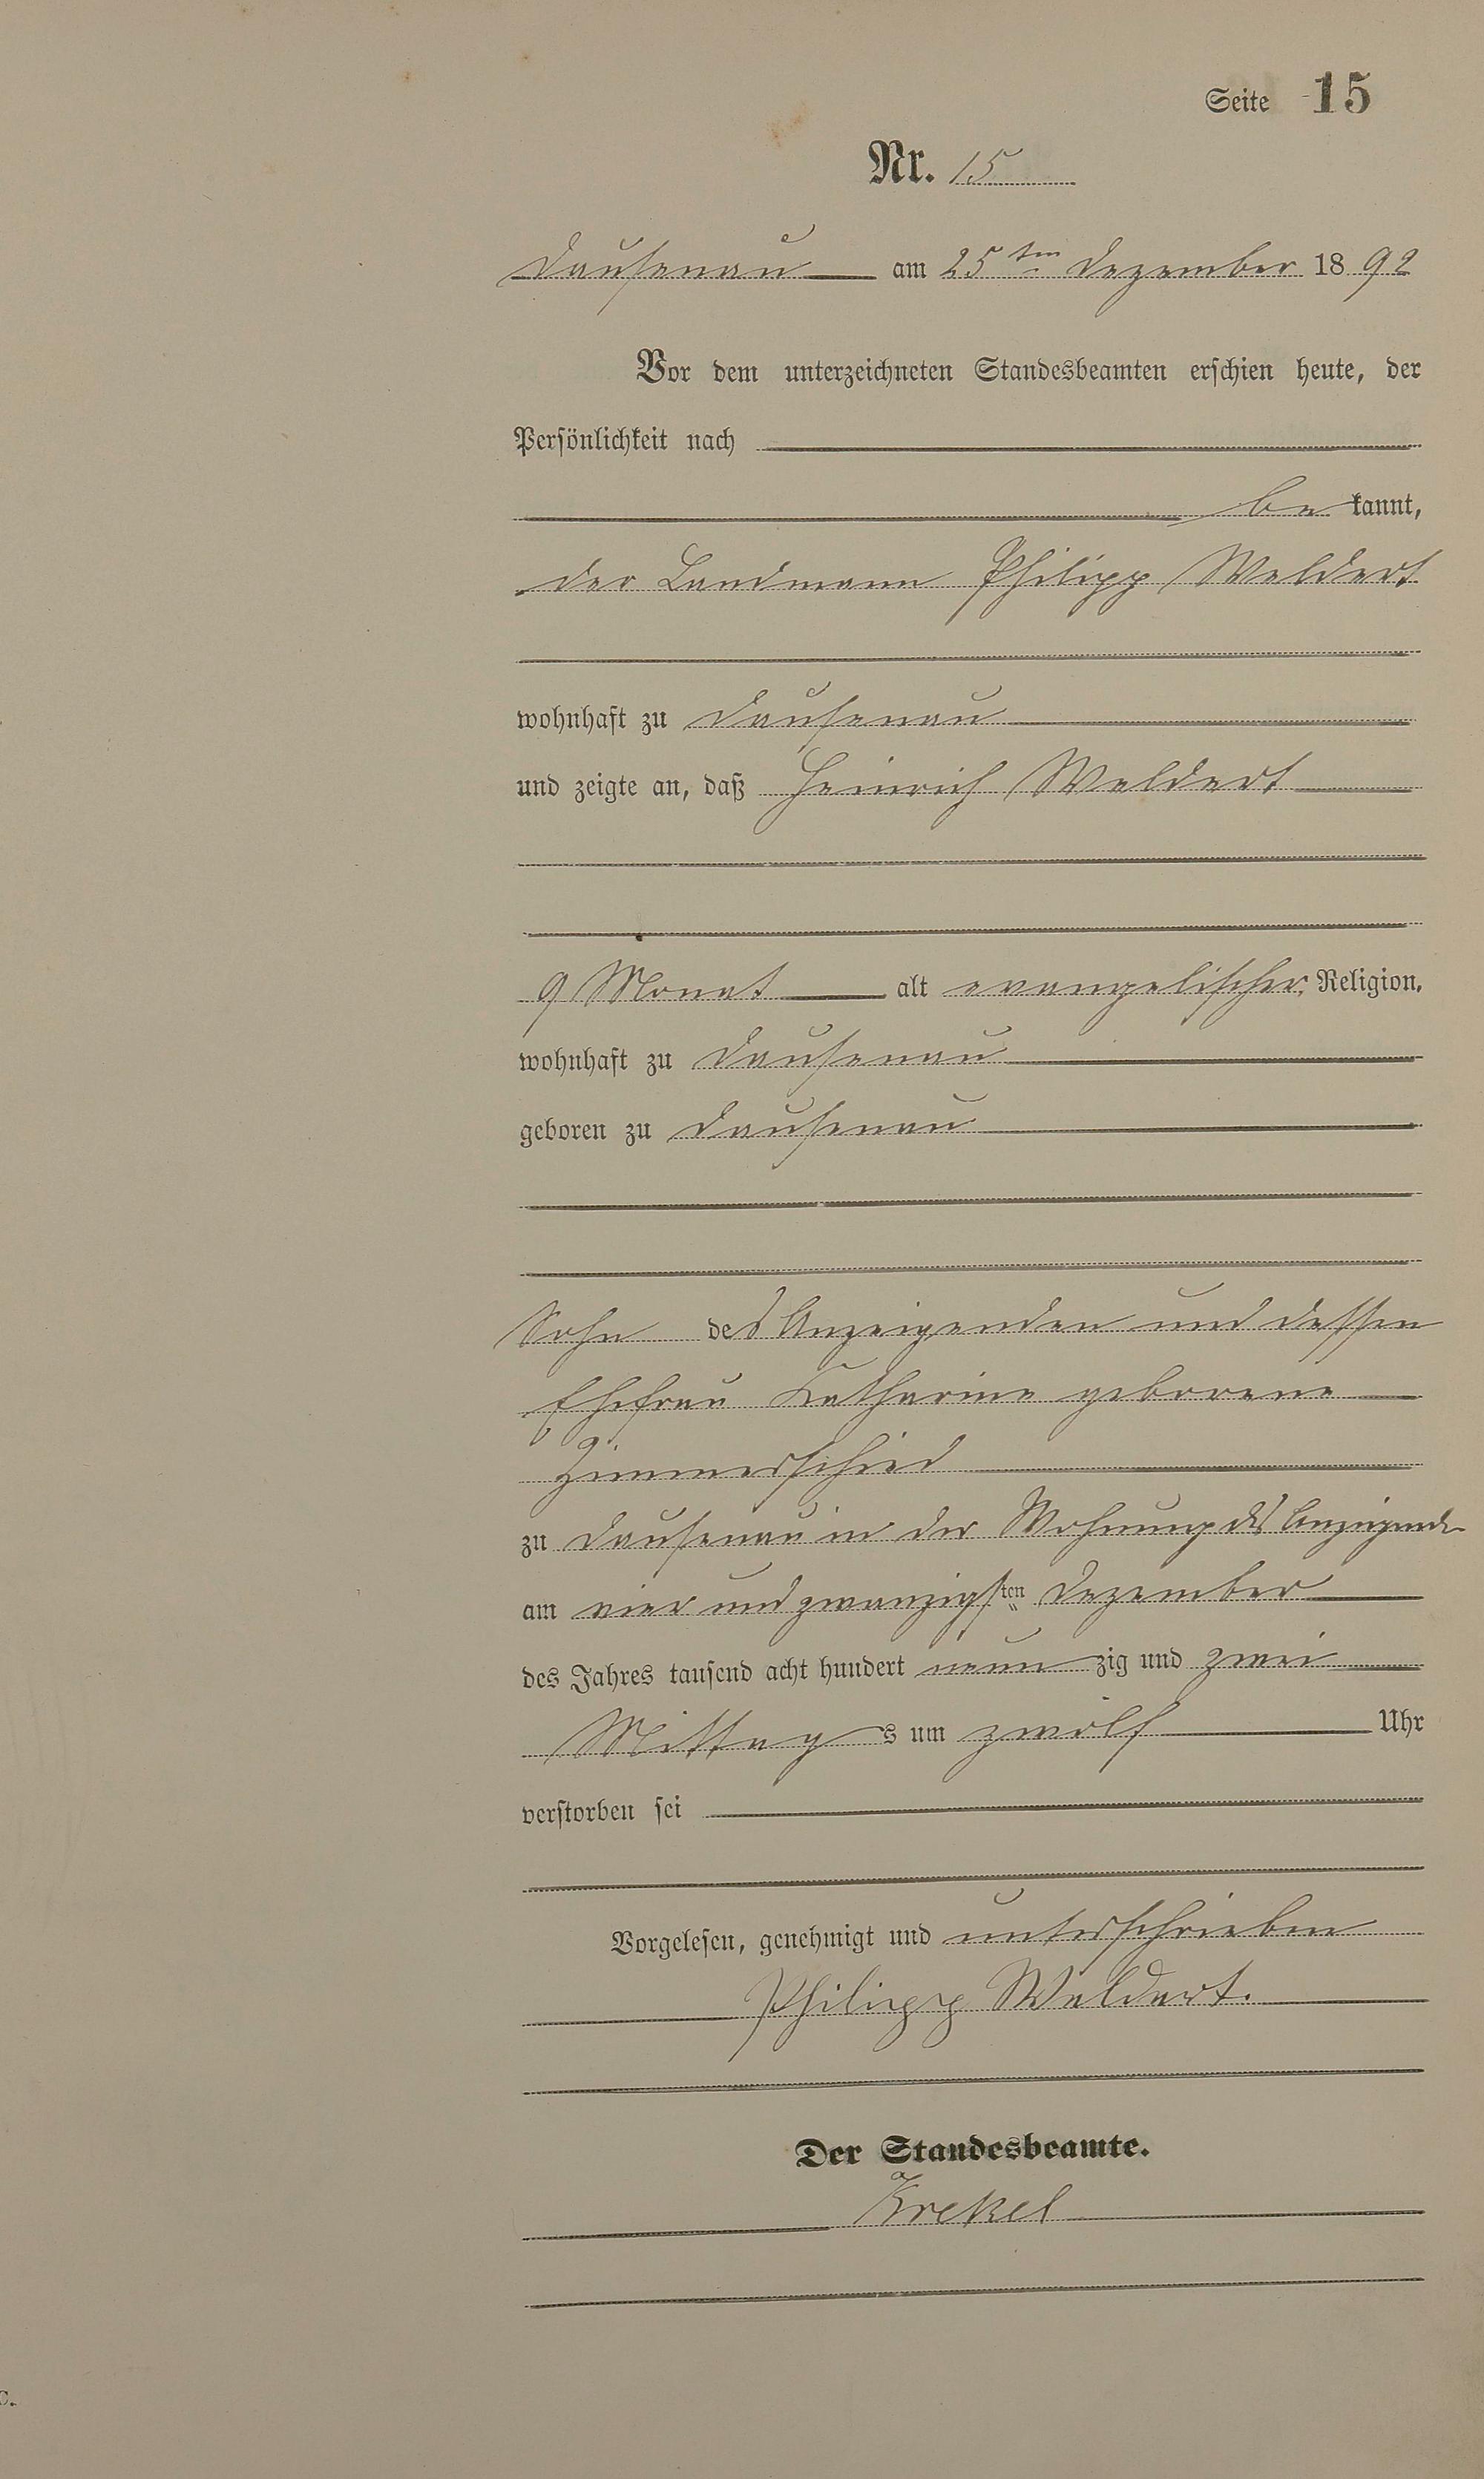 Seite 15
Nr. 15
Dausenau am 25ten Dezember 1892
Vor dem unterzeichneten Standesbeamten erschien heute, der
Persönlichkeit nach
bekannt,
der Landmann Philipp Weldert
wohnhaft zu Dausenau
und zeigte an, daß Heinrich Weldert
9 Monat alt evangelischer Religion,
wohnhaft zu Dausenau
geboren zu Dausenau
Sohn des Anzeigenden und dessen
Ehefrau Katharine geborene
Zimmerschied
zu Dausenau in der Wohnung des Anzeigenden
am vier und zwanzigsten Dezember
des Jahres tausend acht hundert neunzig und zwei
Mittags um zwölf Uhr
verstorben sei
Vorgelesen, genehmigt und unterschrieben
Philipp Weldert.
Der Standesbeamte.
Krekel
c.